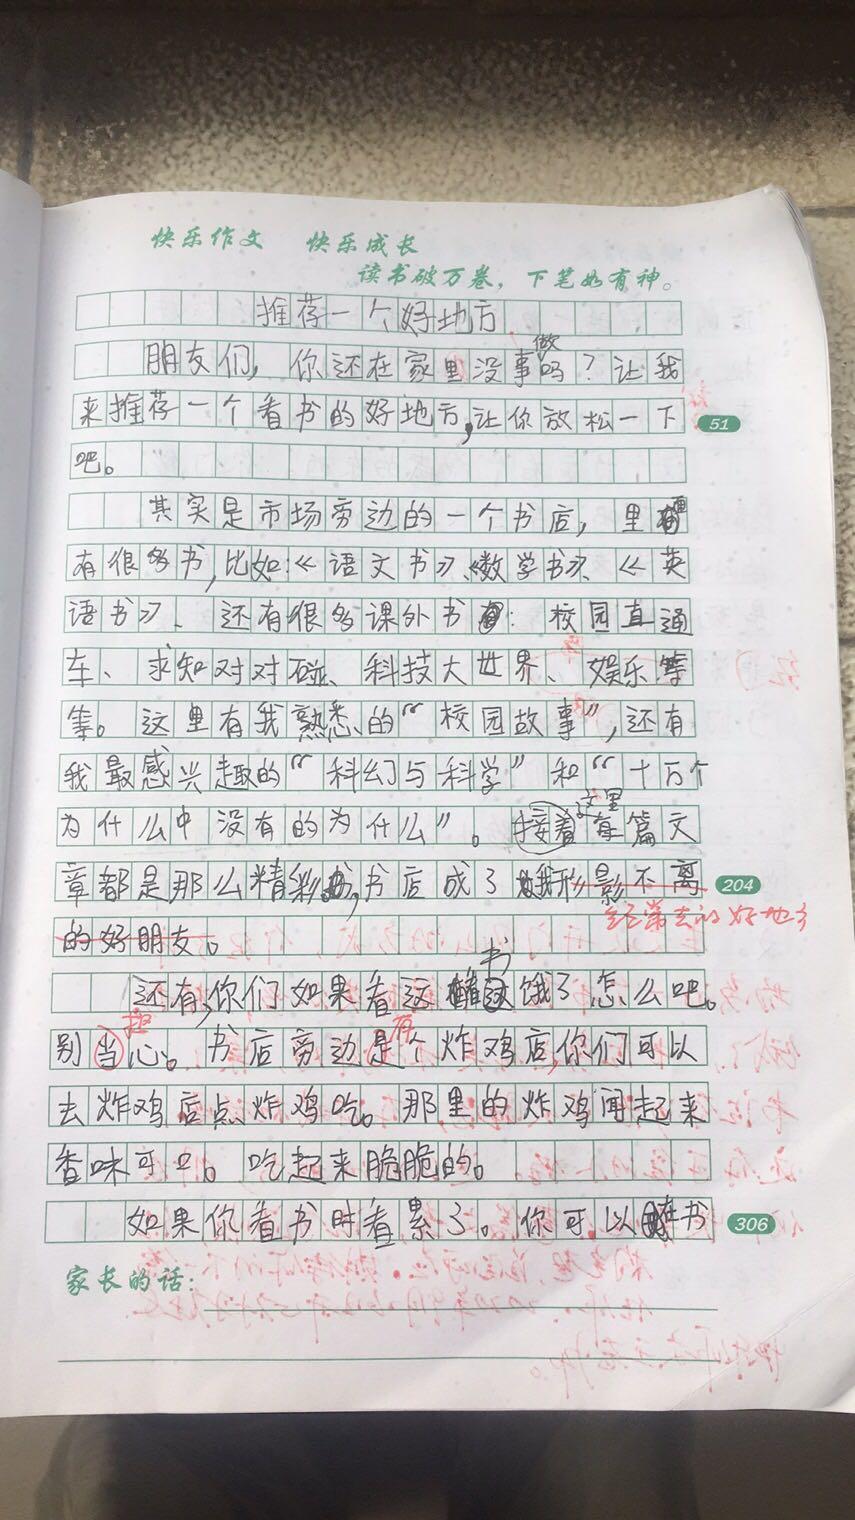 快乐作文 快乐成长
读书破万卷，下笔如有神。
推荐一个好地方
做
朋友们，你还在家里没事吗？让我
来推荐一个看书的好地方，让你放松一下
51
吧。
其实是市场旁边的一个书店，里
有很多书，比如：《语文书》、《数学书》、《英
语书》、还有很多课外书：校园直通
车、求知对对碰、科技大世界、娱乐等
等。这里有我熟悉的“校园故事”，还有
我最感兴趣的“科幻与科学”和“十万个
为什么中没有的为什么”。接着有篇文
这里
章都是那么精彩，书店成了我形影不离
204
经常去的好地方
的好朋友。
书
还有，你们如果看这饿了怎么吧。
别当心。书店旁边是个炸鸡店，你们可以
担
有
去炸鸡店点炸鸡吃。那里的炸鸡闻起来
香味可口。吃起来脆脆的。
如果你看书时看累了。你可以在书
306
家长的话：